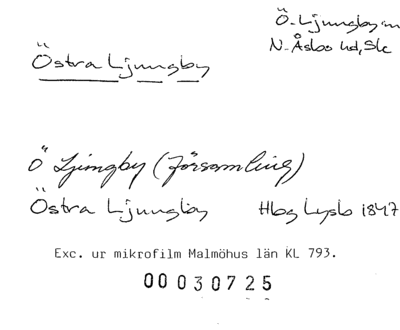 Ö. Ljungby sn
N. Åsbo hd, Sk
Östra Ljungby
Ö Ljungby (församling)
Östra Ljungby Hbg Lysb 1847
Exc. ur mikrofilm Malmöhus län KL 793.
00030725